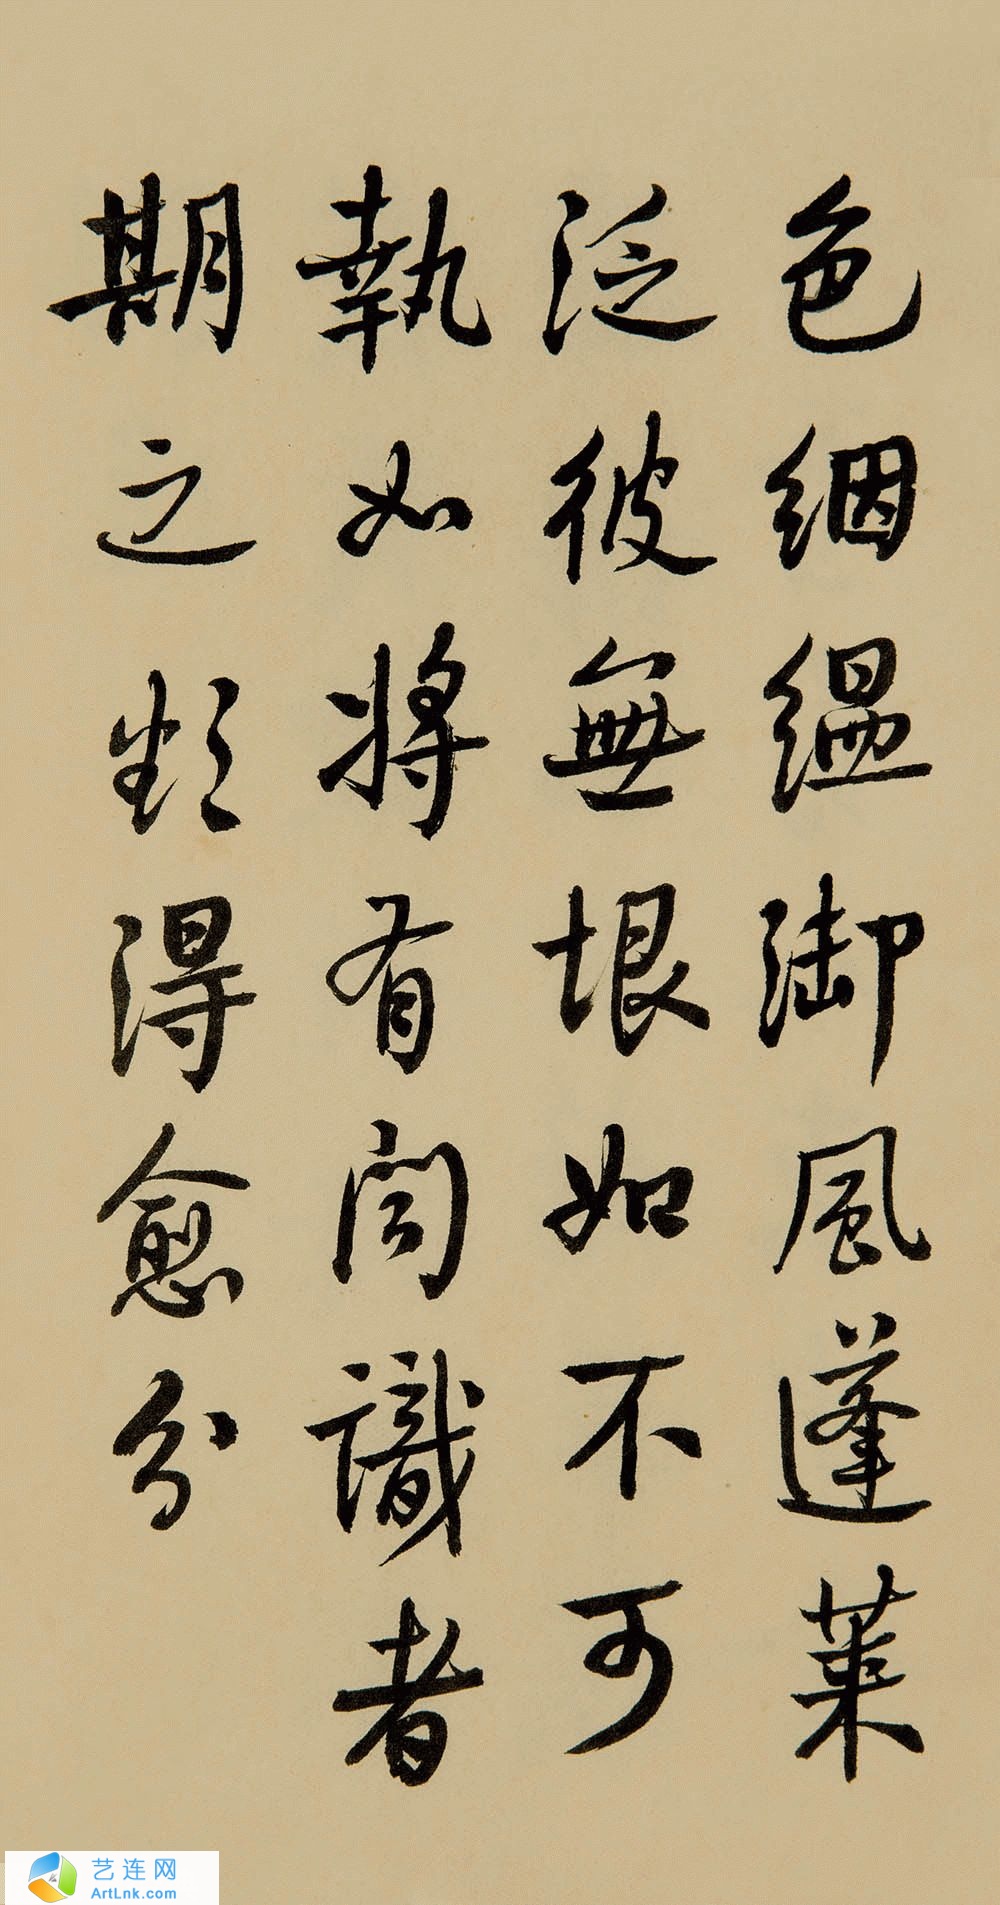 色絪縕御風蓬葉
泛彼無垠如不可
執如將有聞識者
期之欲得愈分
艺连网
ArtLnk.com